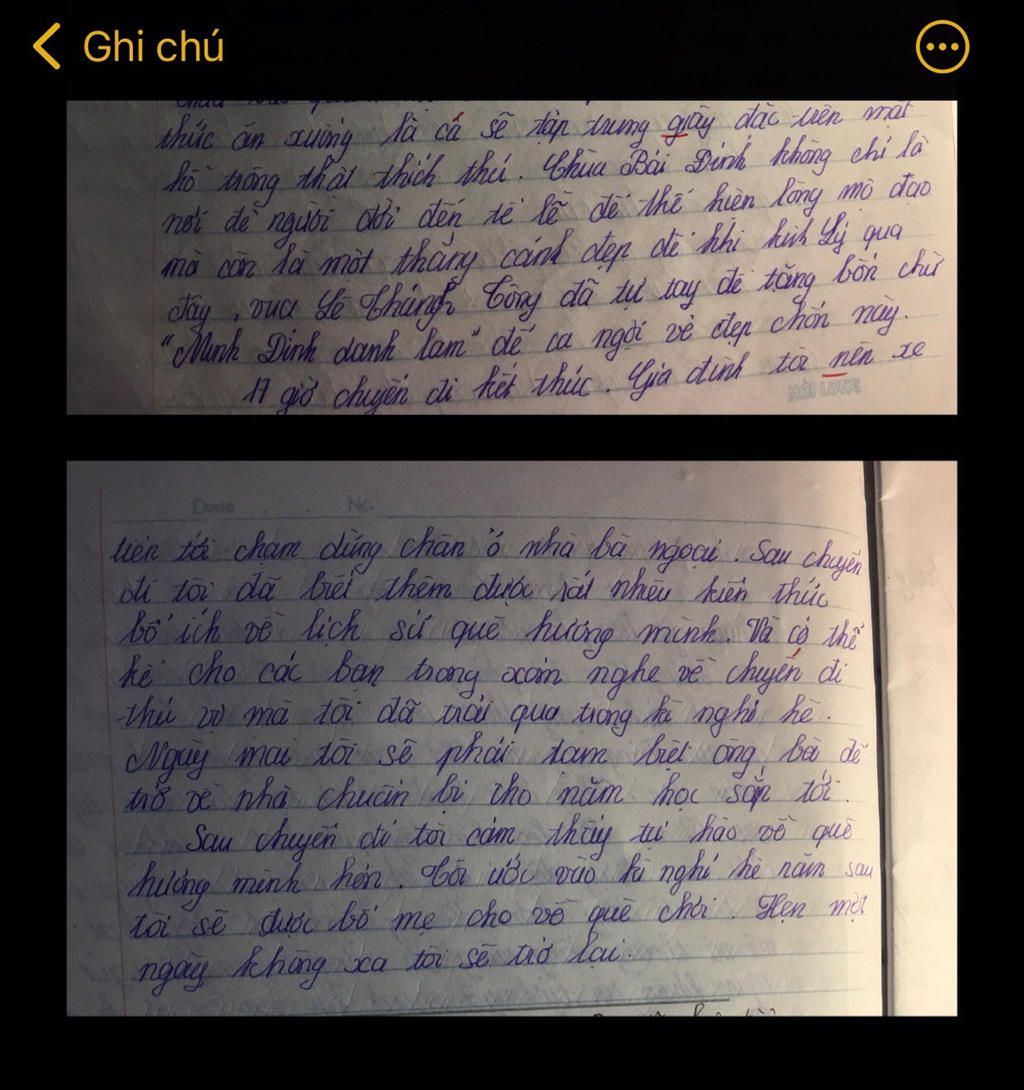 Ghi chú
thức ăn xuống là cá sẽ tập trung giày đặc trên mặt
hồ trông thật thích thú. Chùa Bái Đính không chỉ là
nơi để người đời đến tế lễ để thể hiện lòng mộ đạo
mà còn là một thắng cảnh đẹp để khi kinh Lý qua
đây, vua Lê Thánh Tông đã tự tay đề tặng bốn chữ
"Minh Đỉnh danh lam" để ca ngợi vẻ đẹp chốn này.
17 giờ chuyến đi kết thúc. Gia đình tôi nên xe
Date No.
tiến tới chạm dừng chân ở nhà bà ngoại. Sau chuyến
đi tôi đã biết thêm được rất nhiều kiến thức
bổ ích về lịch sử quê hương mình. Và có thể
kể cho các bạn trong xóm nghe về chuyến đi
thú vị mà tôi đã trải qua trong kì nghỉ hè.
Ngày mai tôi sẽ phải tạm biệt ông bà để
trở về nhà chuẩn bị cho năm học sắp tới.
Sau chuyến đi tôi cảm thấy tự hào về quê
hương mình hơn. Tôi ước vào kì nghỉ hè năm sau
tôi sẽ được bố mẹ cho về quê chơi. Hẹn một
ngày không xa tôi sẽ trở lại.